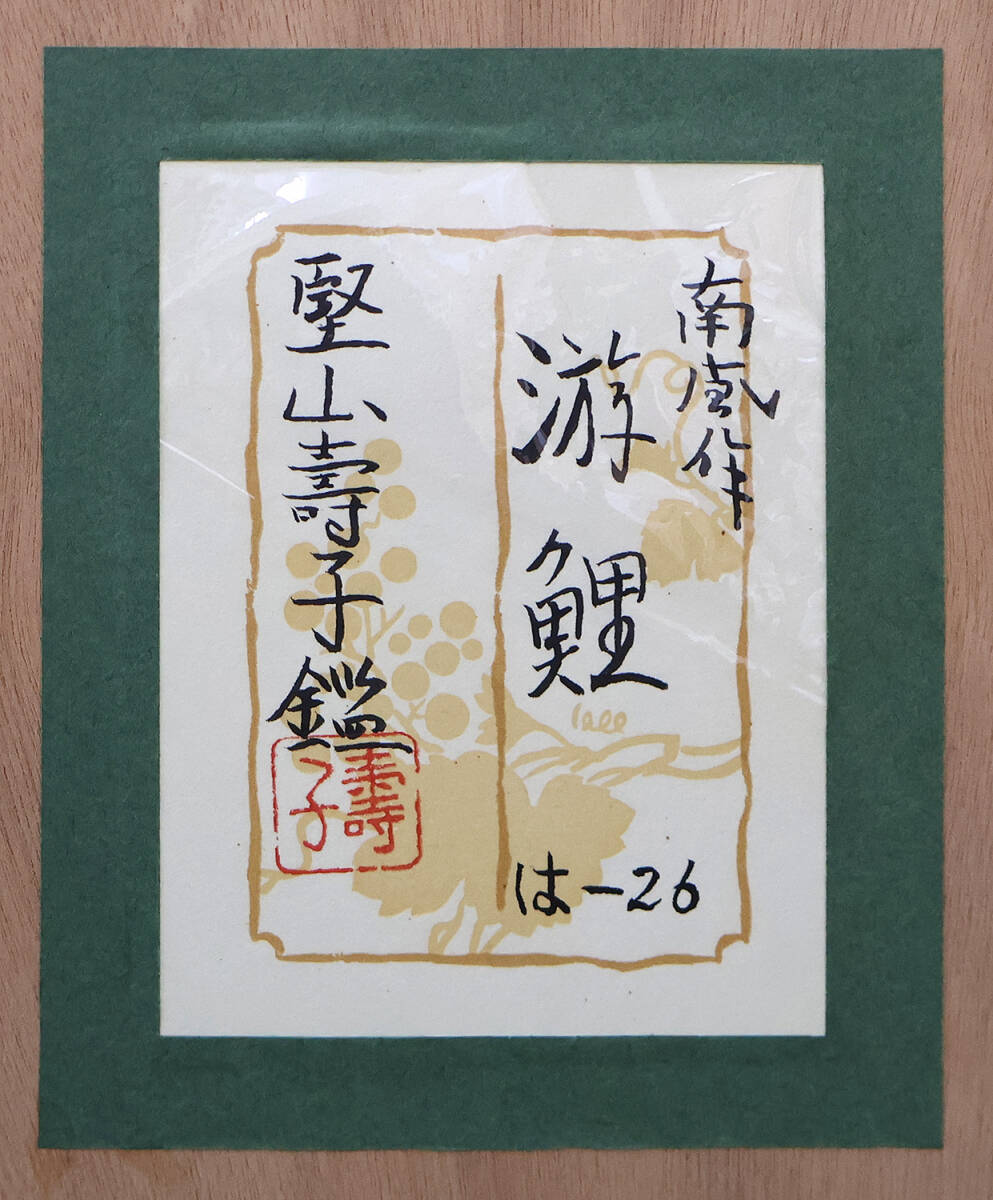 南風作
游鯉
は-26
堅山壽子鑑
壽子